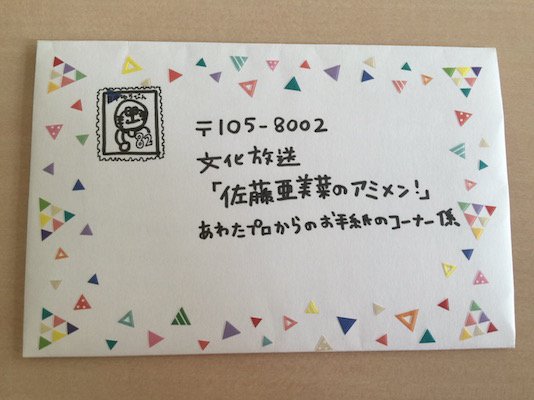 82
〒105-8002
文化放送
「佐藤亜美菜のアミメン!」
あわたプロからのお手紙のコーナー係